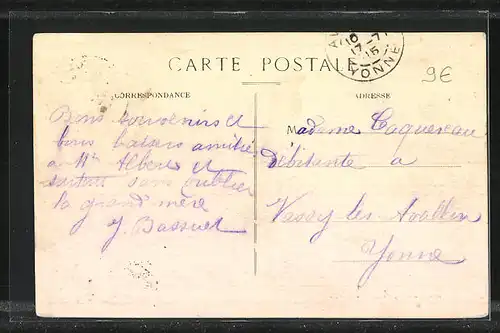 CARTE POSTALE
9€
CORRESPONDANCE
ADRESSE
YONNE
Bons souvenirs et
bons baisers amitiés
a Mr Albert et
surtout sans oublier
la grand mère
J. Bassuet
Madame Caquereau
débitante a
Vassy les Avallon
Yonne